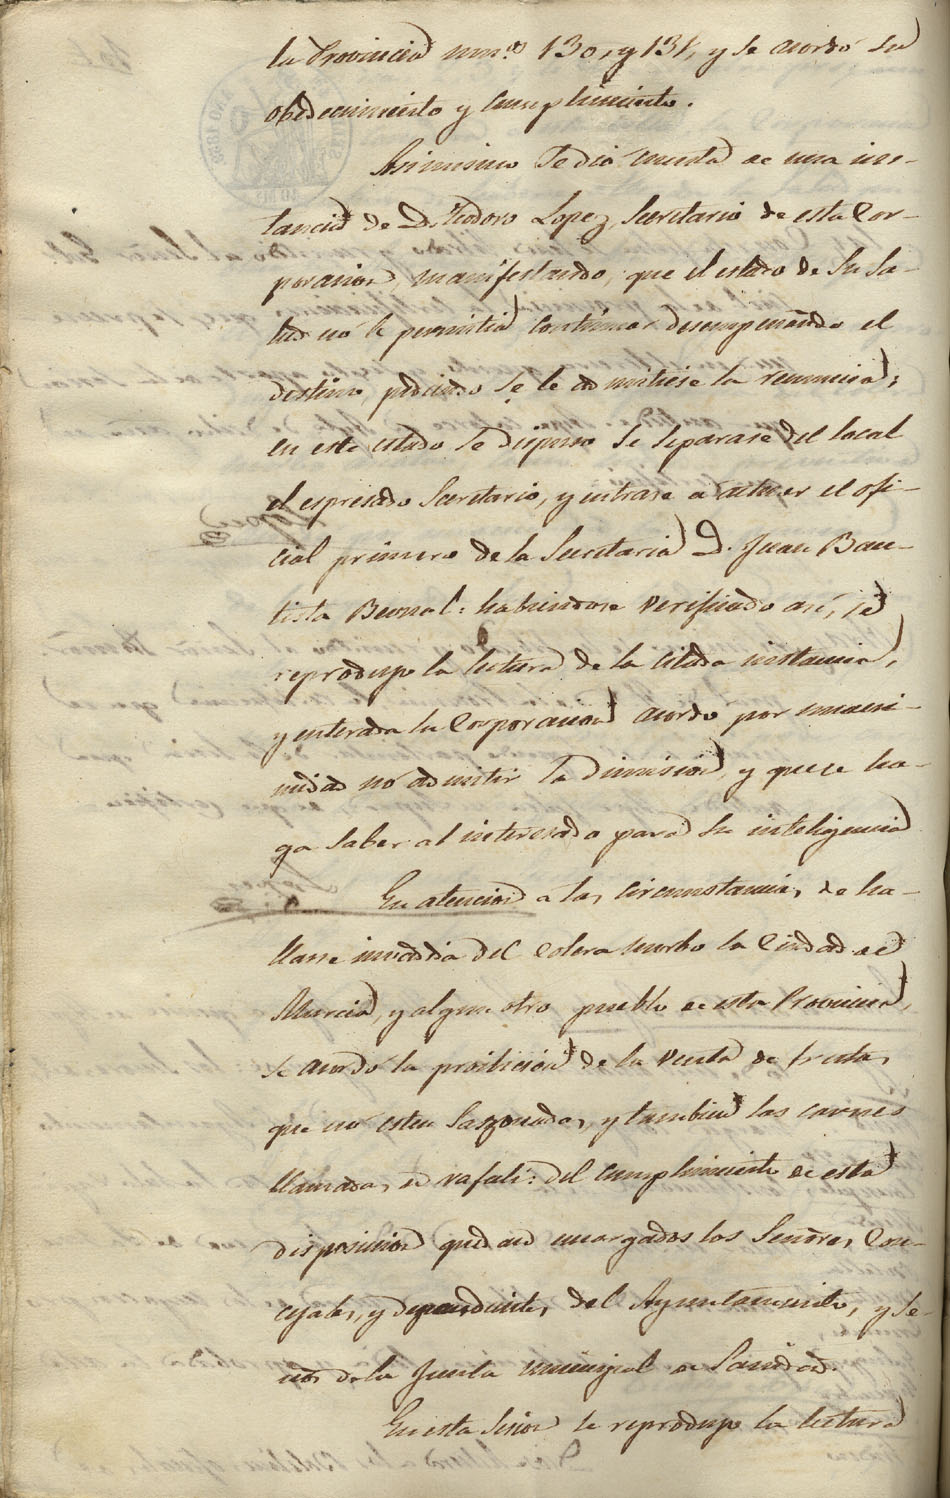 la Provincia num.s 130, y 131, y se acordó su
obedecimiento y cumplimiento.
Asimismo se dió cuenta de una ins-
tancia de D. Teodoro Lopez, Secretario de esta Cor-
poracion, manifestando, que el estado de su sa-
lud nó le permitia continuar desempeñando el
destino, pidiendo se le admitiese la renuncia;
en este estado se dispuso se separase del local
el espresado Secretario, y entrase á actuar el ofi-
cial primero de la Secretaria D. Juan Bau-
tista Bernal: habiendose verificado así, se
reprodujo la lectura de la citada instancia,
y enterada la Corporacion acordó por unani-
midad nó admitir la dimision, y que se ha-
ga saber al interesado para su inteligencia
En atencion a las circunstancias, de ha-
llarse invadida del Colera morbo la Ciudad de
Murcia, y algun otro pueblo de esta Provincia,
se acordó la proibicion de la venta de frutas,
que nó esten sazonadas, y tambien las carnes
llamadas, de rafalí: del cumplimiento de esta
disposicion quedan encargados los Señores, Con-
cejales, y dependientes, del Ayuntamiento, y se-
nos de la Junta municipal de Sanidad.
En esta Sesion se reprodujo la lectura